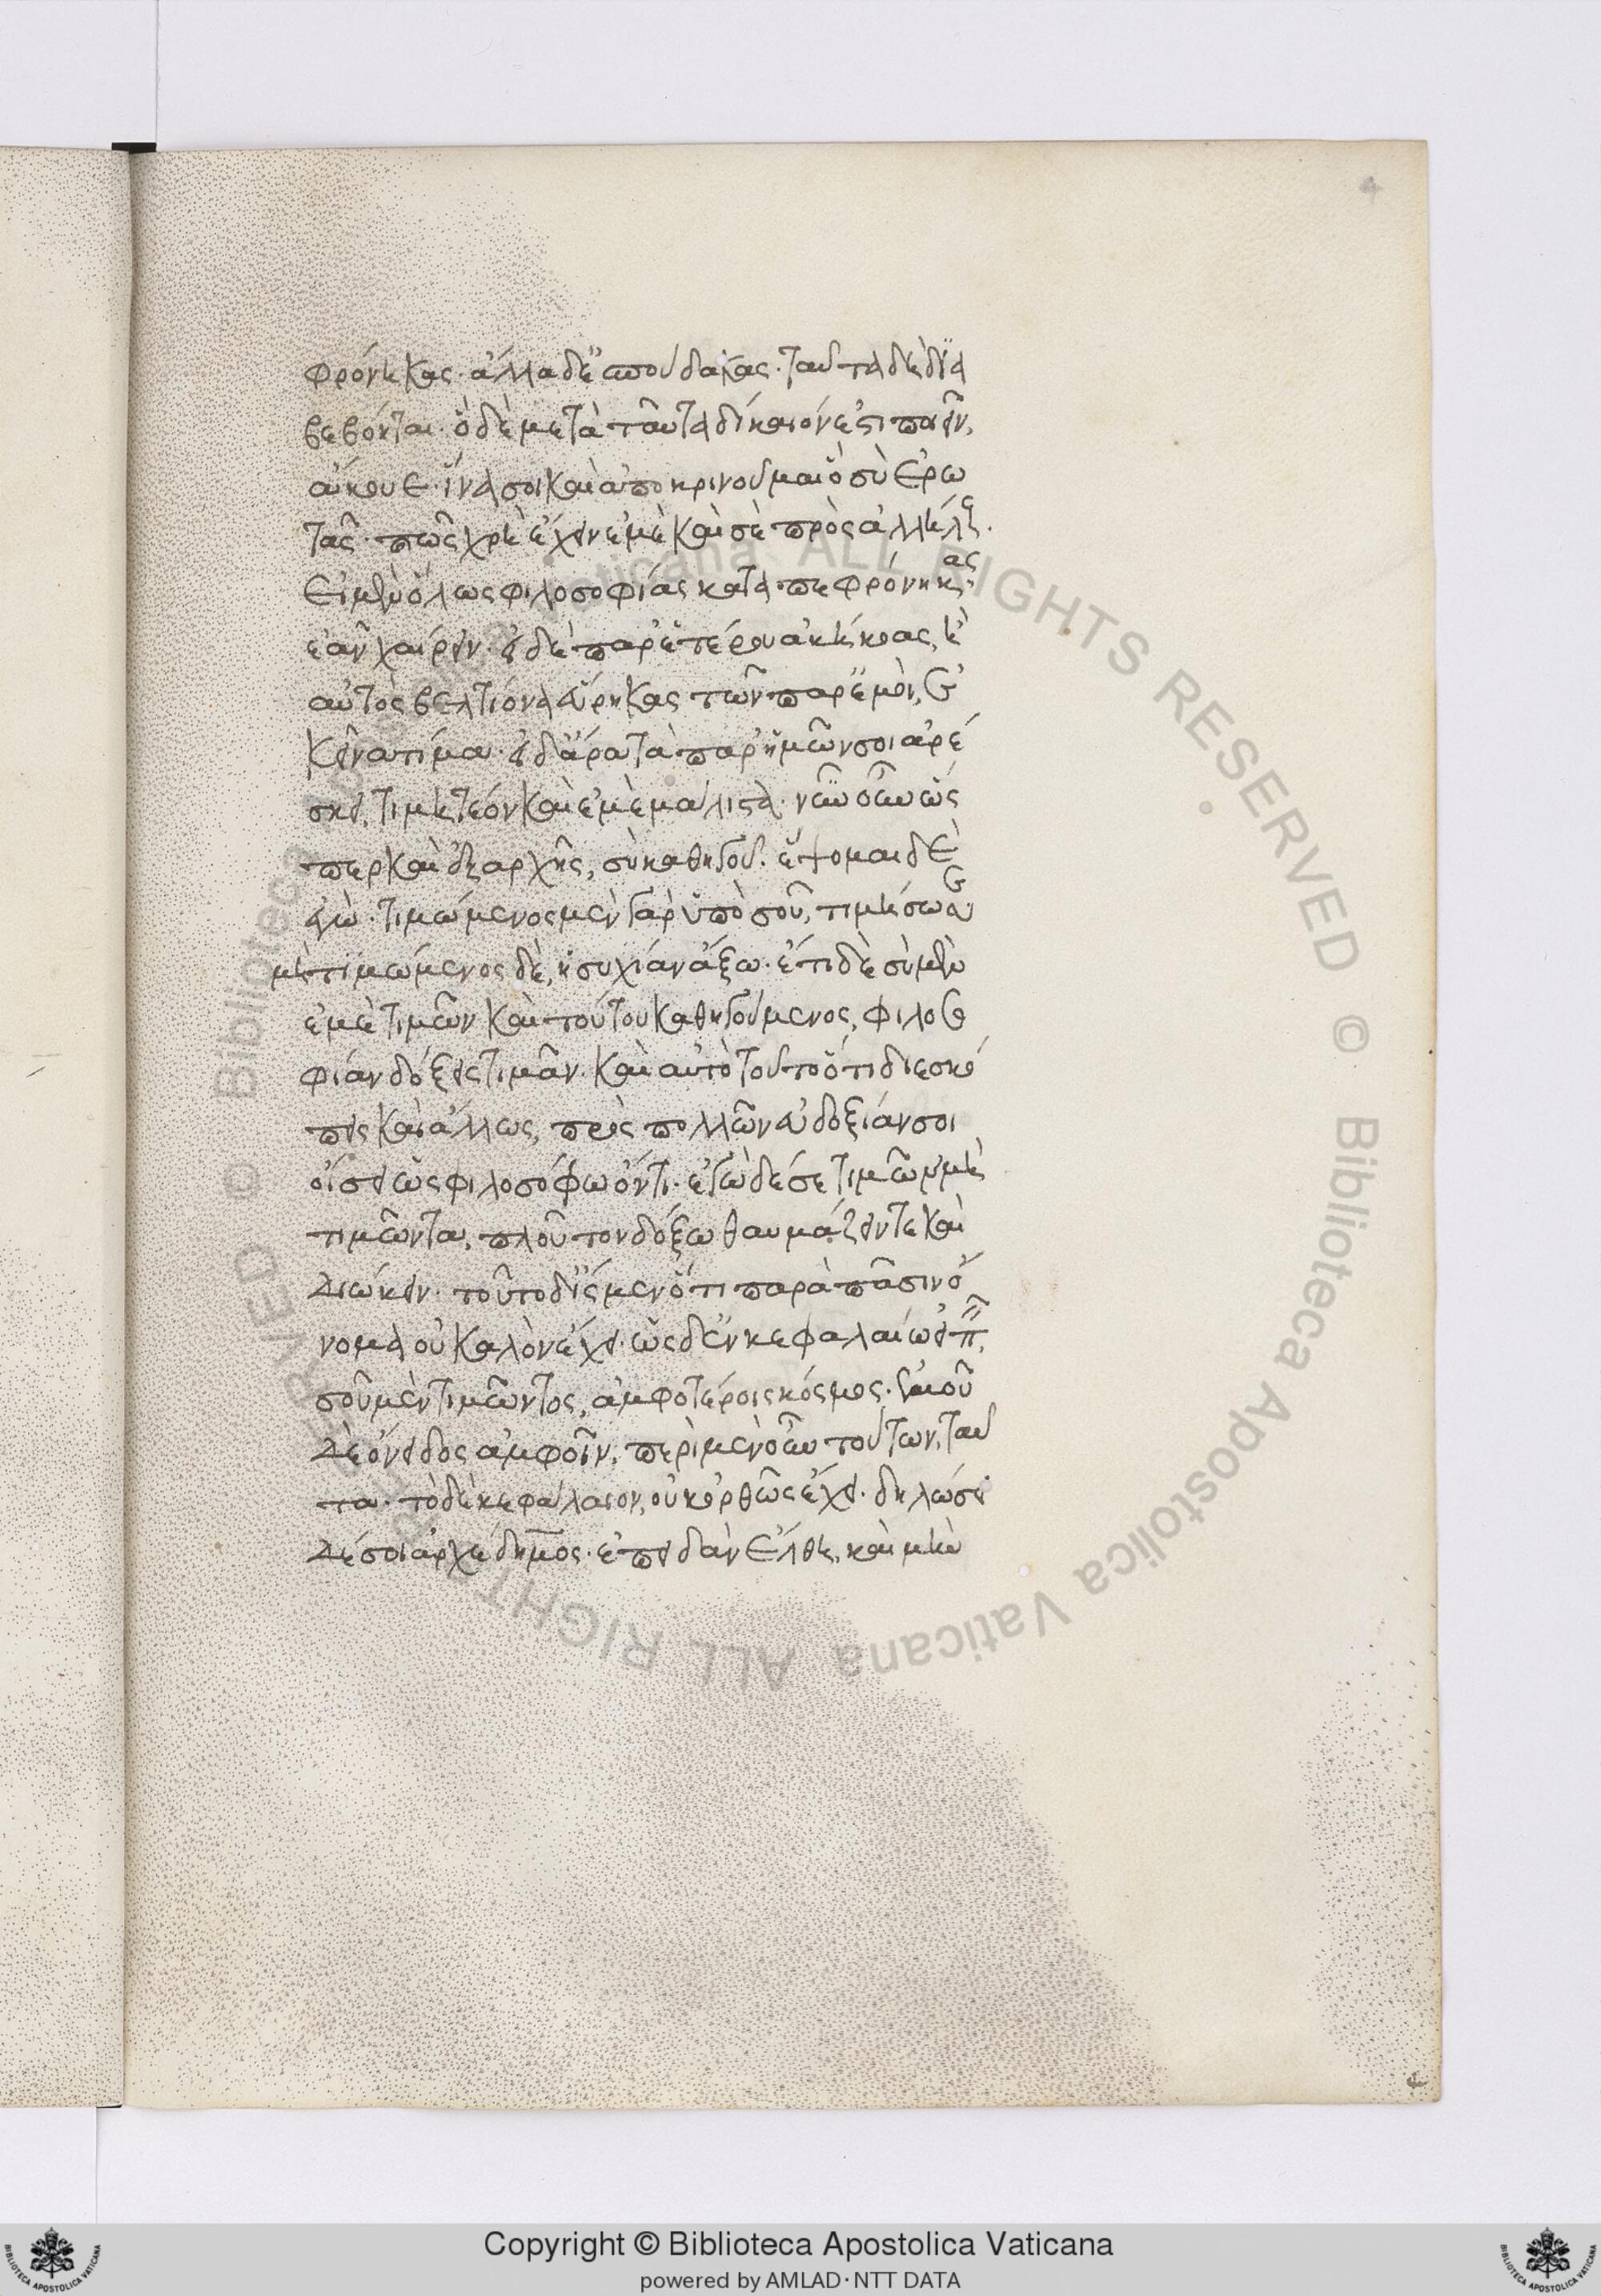 4
φρόνηκας· ἄλλα δὲ ἐσπούδακας· ταῦτα δὲ δια
βεβόηται· ὃ δὲ μετὰ ταῦτα δίκαιόν ἐστι ποιεῖν,
ἄκουε· ἵνα σοι καὶ ἀποκρινοῦμαι ὃ σὺ ἐρω
τᾷς· πῶς χρὴ ἔχειν ἐμὲ καὶ σὲ πρὸς ἀλλήλους.
Εἰ μὲν ὅλως φιλοσοφίας καταπεφρόνηκας,
ἐᾶν χαίρειν· εἰ δὲ παρ' ἑτέρου ἀκήκοας, ἢ
αὐτὸς βελτίονα εὕρηκας τῶν παρ' ἐμοὶ, ἐ
κεῖνα τίμα· εἰ δ' ἄρα τὰ παρ' ἡμῶν σοι ἀρέ
σκει, τιμητέον καὶ ἐμὲ μάλιστα· νῦν οὖν ὥς
περ καὶ ἐξ ἀρχῆς, σὺ καθηγοῦ· ἕψομαι δὲ
ἐγώ· τιμώμενος μὲν γὰρ ὑπὸ σοῦ, τιμήσω σε·
μὴ τιμώμενος δὲ, ἡσυχίαν ἄξω· ἔτι δὲ σὺ μὲν
ἐμὲ τιμῶν καὶ τούτου καθηγούμενος, φιλοσο
φίαν δόξεις τιμᾶν· καὶ αὐτὸ τοῦτο ὅτι διεσκό
πεις καὶ ἄλλως, πρὸς πολλῶν εὐδοξίαν σοι
οἴσει ὡς φιλοσόφῳ ὄντι· ἐγὼ δέ σε τιμῶν μὴ
τιμῶντα, πλοῦτον δόξω θαυμάζειν τε καὶ
διώκειν· τοῦτο δ' ἴσμεν ὅτι παρὰ πᾶσιν ὄ
νομα οὐ καλὸν ἔχει· ὡς δ' ἐν κεφαλαίῳ εἰπεῖν,
σοῦ μὲν τιμῶντος, ἀμφοτέροις κόσμος· ἐμοῦ
δὲ ὄνειδος ἀμφοῖν· περὶ μὲν οὖν τούτων, ταῦ
τα· τὸ δὲ κεφάλαιον, οὐκ ὀρθῶς ἔχει· δηλώσει
δέ σοι ἀρχέδημος· ἐπειδὰν ἔλθη, καὶ μὲν
Copyright © Biblioteca Apostolica Vaticana
powered by AMLAD·NTT DATA